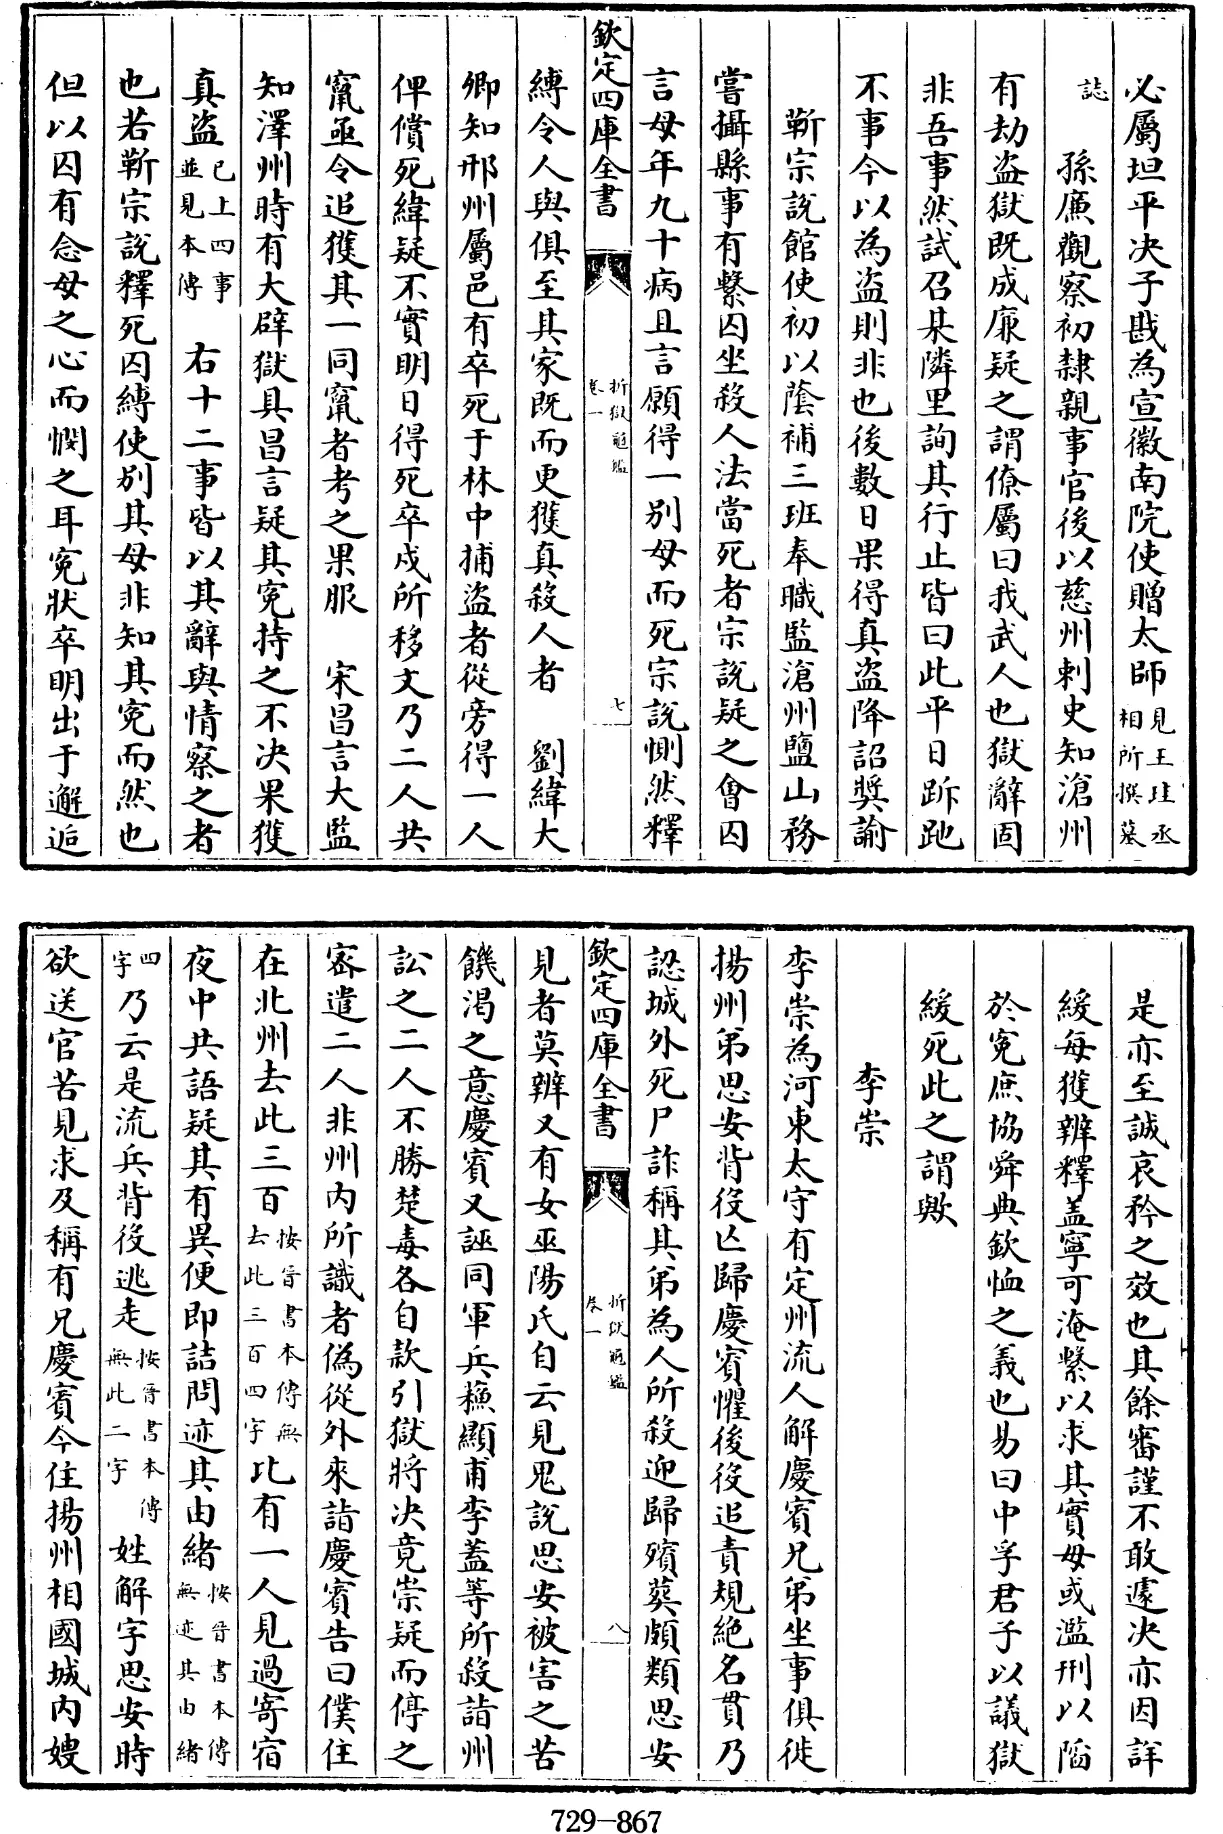 必屬坦平決子戡為宣徽南院使贈太師見王珪丞相所撰墓
誌　孫廉觀察初隸親事官後以慈州刺史知滄州
有劫盜獄既成廉疑之謂僚屬曰我武人也獄辭固
非吾事然試召某隣里詢其行止皆曰此平日跅跎
不事今以為盜則非也後數日果得真盜降詔奬諭
靳宗說館使初以蔭補三班奉職監滄州鹽山務
嘗攝縣事有繫囚坐殺人法當死者宗說疑之會囚
言母年九十病且言願得一別母而死宗說惻然釋
欽定四庫全書　折獄龜鑑卷一　七
縛令人與俱至其家既而更獲真殺人者　劉緯大
卿知邢州屬邑有卒死于林中捕盜者從旁得一人
俾償死緯疑不實明日得死卒戍所移文乃二人共
竄亟令追獲其一同竄者考之果服　宋昌言大監
知澤州時有大辟獄具昌言疑其寃持之不決果獲
真盜已上四事並見本傳　右十二事皆以其辭與情察之者
也若靳宗說釋死囚縛使別其母非知其寃而然也
但以囚有念母之心而憫之耳寃狀卒明出于邂逅
是亦至誠哀矜之效也其餘審謹不敢遽決亦因詳
緩每獲辨釋蓋寧可淹繫以求其實毋或濫刑以陷
於寃庶協舜典欽恤之義也易曰中孚君子以議獄
緩死此之謂歟
李崇
李崇為河東太守有定州流人解慶賓兄弟坐事俱徙
揚州弟思安背役亡歸慶賓懼後役追責規絶名貫乃
認城外死尸詐稱其弟為人所殺迎歸殯葬頗類思安
欽定四庫全書　折獄龜鑑卷一　八
見者莫辨又有女巫陽氏自云見鬼說思安被害之苦
饑渴之意慶賓又誣同軍兵蘓顯甫李蓋等所殺詣州
訟之二人不勝楚毒各自款引獄將決竟崇疑而停之
密遣二人非州內所識者偽從外來詣慶賓告曰僕住
在北州去此三百按晉書本傳無去此三百四字比有一人見過寄宿
夜中共語疑其有異便即詰問迹其由緒按晉書本傳無迹其由緒
四字乃云是流兵背役逃走按晉書本傳無此二字　姓解字思安時
欲送官苦見求及稱有兄慶賓今住揚州相國城內嫂
729—867